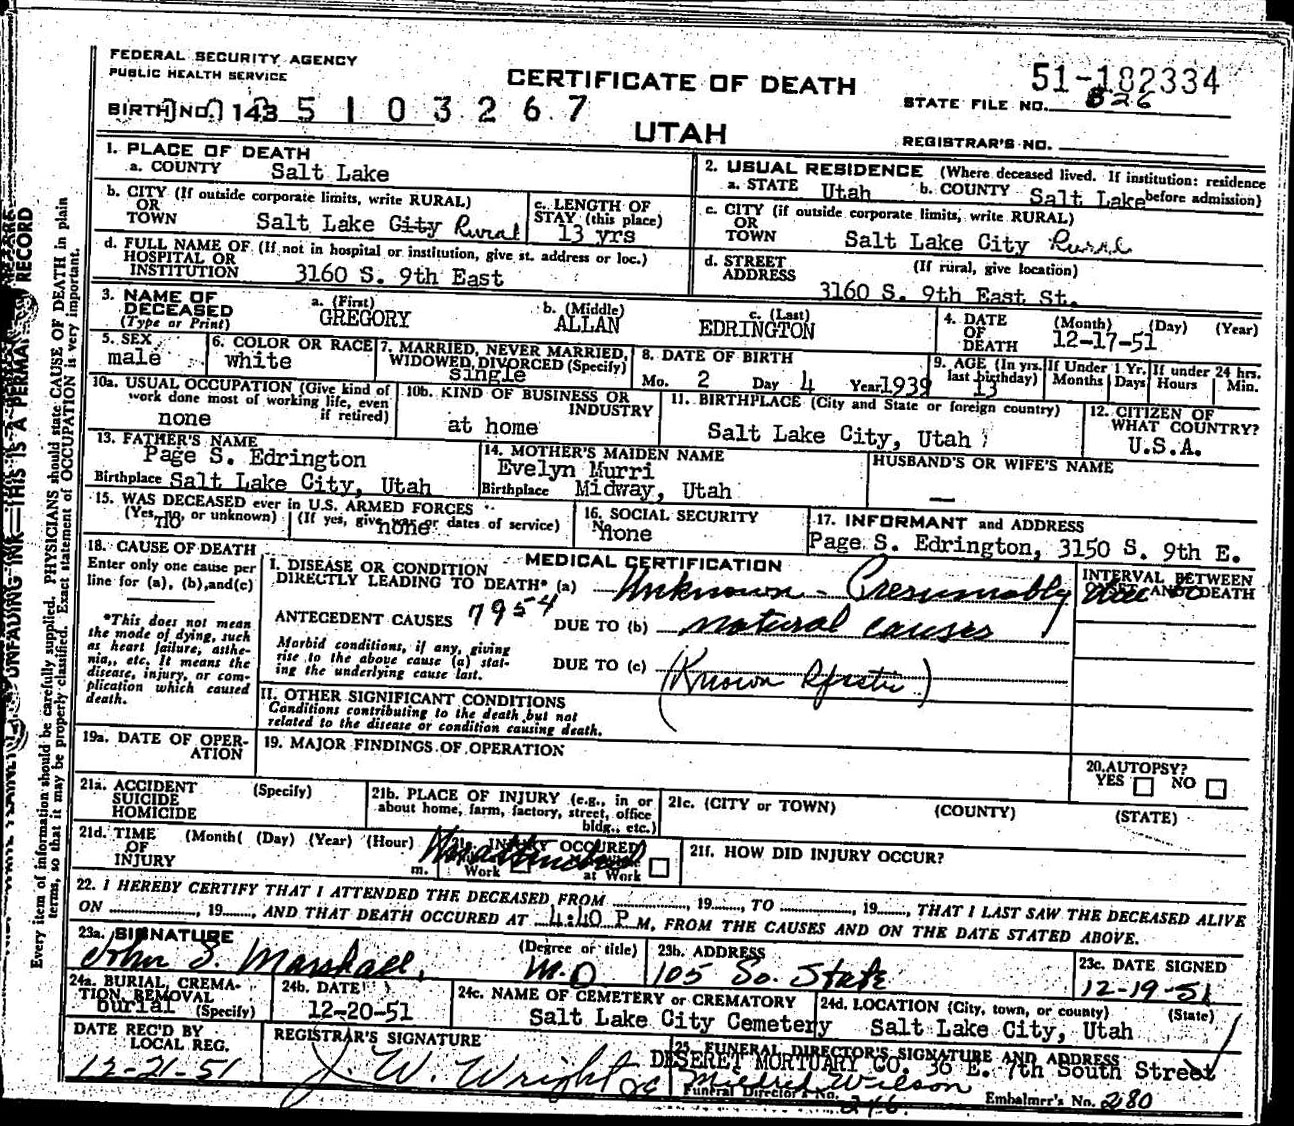 FEDERAL SECURITY AGENCY
PUBLIC HEALTH SERVICE
CERTIFICATE OF DEATH
51-182334
STATE FILE NO. 826
BIRTH NO. 143 5 1 0 3 2 6 7
UTAH
REGISTRAR'S NO.
1. PLACE OF DEATH
a. COUNTY Salt Lake
2. USUAL RESIDENCE (Where deceased lived. If institution: residence before admission)
a. STATE Utah b. COUNTY Salt Lake
b. CITY (If outside corporate limits, write RURAL)
OR
TOWN Salt Lake City Rural
c. LENGTH OF
STAY (this place)
13 yrs
c. CITY (if outside corporate limits, write RURAL)
OR
TOWN Salt Lake City Rural
d. FULL NAME OF (If not in hospital or institution, give st. address or loc.)
HOSPITAL OR
INSTITUTION 3160 S. 9th East
d. STREET (If rural, give location)
ADDRESS 3160 S. 9th East St.
3. NAME OF
DECEASED
(Type or Print)
a. (First)
GREGORY
b. (Middle)
ALLAN
c. (Last)
EDRINGTON
4. DATE (Month) (Day) (Year)
OF
DEATH 12-17-51
5. SEX
male
6. COLOR OR RACE
white
7. MARRIED, NEVER MARRIED,
WIDOWED, DIVORCED (Specify)
single
8. DATE OF BIRTH
Mo. 2 Day 4 Year 1939
9. AGE (In yrs. last birthday)
13
If Under 1 Yr.
Months Days
If under 24 hrs.
Hours Min.
10a. USUAL OCCUPATION (Give kind of
work done most of working life, even
if retired)
none
10b. KIND OF BUSINESS OR
INDUSTRY
at home
11. BIRTHPLACE (City and State or foreign country)
Salt Lake City, Utah
12. CITIZEN OF
WHAT COUNTRY?
U.S.A.
13. FATHER'S NAME
Page S. Edrington
Birthplace Salt Lake City, Utah
14. MOTHER'S MAIDEN NAME
Evelyn Murri
Birthplace Midway, Utah
HUSBAND'S OR WIFE'S NAME
—
15. WAS DECEASED ever in U.S. ARMED FORCES
(Yes, no, or unknown) (If yes, give war or dates of service)
no none
16. SOCIAL SECURITY
No.
none
17. INFORMANT and ADDRESS
Page S. Edrington, 3150 S. 9th E.
18. CAUSE OF DEATH
Enter only one cause per
line for (a), (b), and (c)
*This does not mean
the mode of dying, such
as heart failure, asthe-
nia, etc. It means the
disease, injury, or com-
plication which caused
death.
MEDICAL CERTIFICATION
I. DISEASE OR CONDITION
DIRECTLY LEADING TO DEATH* (a) Unknown - Presumably
ANTECEDENT CAUSES 7954 DUE TO (b) natural causes
Morbid conditions, if any, giving
rise to the above cause (a) stat-
ing the underlying cause last.
DUE TO (c) (Known
II. OTHER SIGNIFICANT CONDITIONS
Conditions contributing to the death but not
related to the disease or condition causing death.
INTERVAL BETWEEN
ONSET AND DEATH
19a. DATE OF OPER-
ATION
19. MAJOR FINDINGS OF OPERATION
20. AUTOPSY?
YES NO
21a. ACCIDENT (Specify)
SUICIDE
HOMICIDE
21b. PLACE OF INJURY (e.g., in or
about home, farm, factory, street, office
bldg., etc.)
21c. (CITY or TOWN) (COUNTY) (STATE)
21d. TIME (Month) (Day) (Year) (Hour)
OF
INJURY m.
INJURY OCCURED
Work at Work
21f. HOW DID INJURY OCCUR?
22. I HEREBY CERTIFY THAT I ATTENDED THE DECEASED FROM , 19 , TO , 19 , THAT I LAST SAW THE DECEASED ALIVE
ON , 19 , AND THAT DEATH OCCURED AT 4:40 P M, FROM THE CAUSES AND ON THE DATE STATED ABOVE.
23a. SIGNATURE (Degree or title)
John S. Marshall, M.D
23b. ADDRESS
105 So. State
23c. DATE SIGNED
12-19-51
24a. BURIAL, CREMA-
TION, REMOVAL
(Specify)
burial
24b. DATE
12-20-51
24c. NAME OF CEMETERY or CREMATORY
Salt Lake City Cemetery
24d. LOCATION (City, town, or county) (State)
Salt Lake City, Utah
DATE REC'D BY
LOCAL REG.
12-21-51
REGISTRAR'S SIGNATURE
J. W. Wright
25. FUNERAL DIRECTOR'S SIGNATURE AND ADDRESS
DESERET MORTUARY CO. 36 E. 7th South Street
Mildred Wilson
Funeral Director's No. 246. Embalmer's No. 280
UNFADING INK—THIS IS A PERMANENT RECORD
Every item of information should be carefully supplied. PHYSICIANS should state CAUSE OF DEATH in plain
terms, so that it may be properly classified. Exact statement of OCCUPATION is very important.